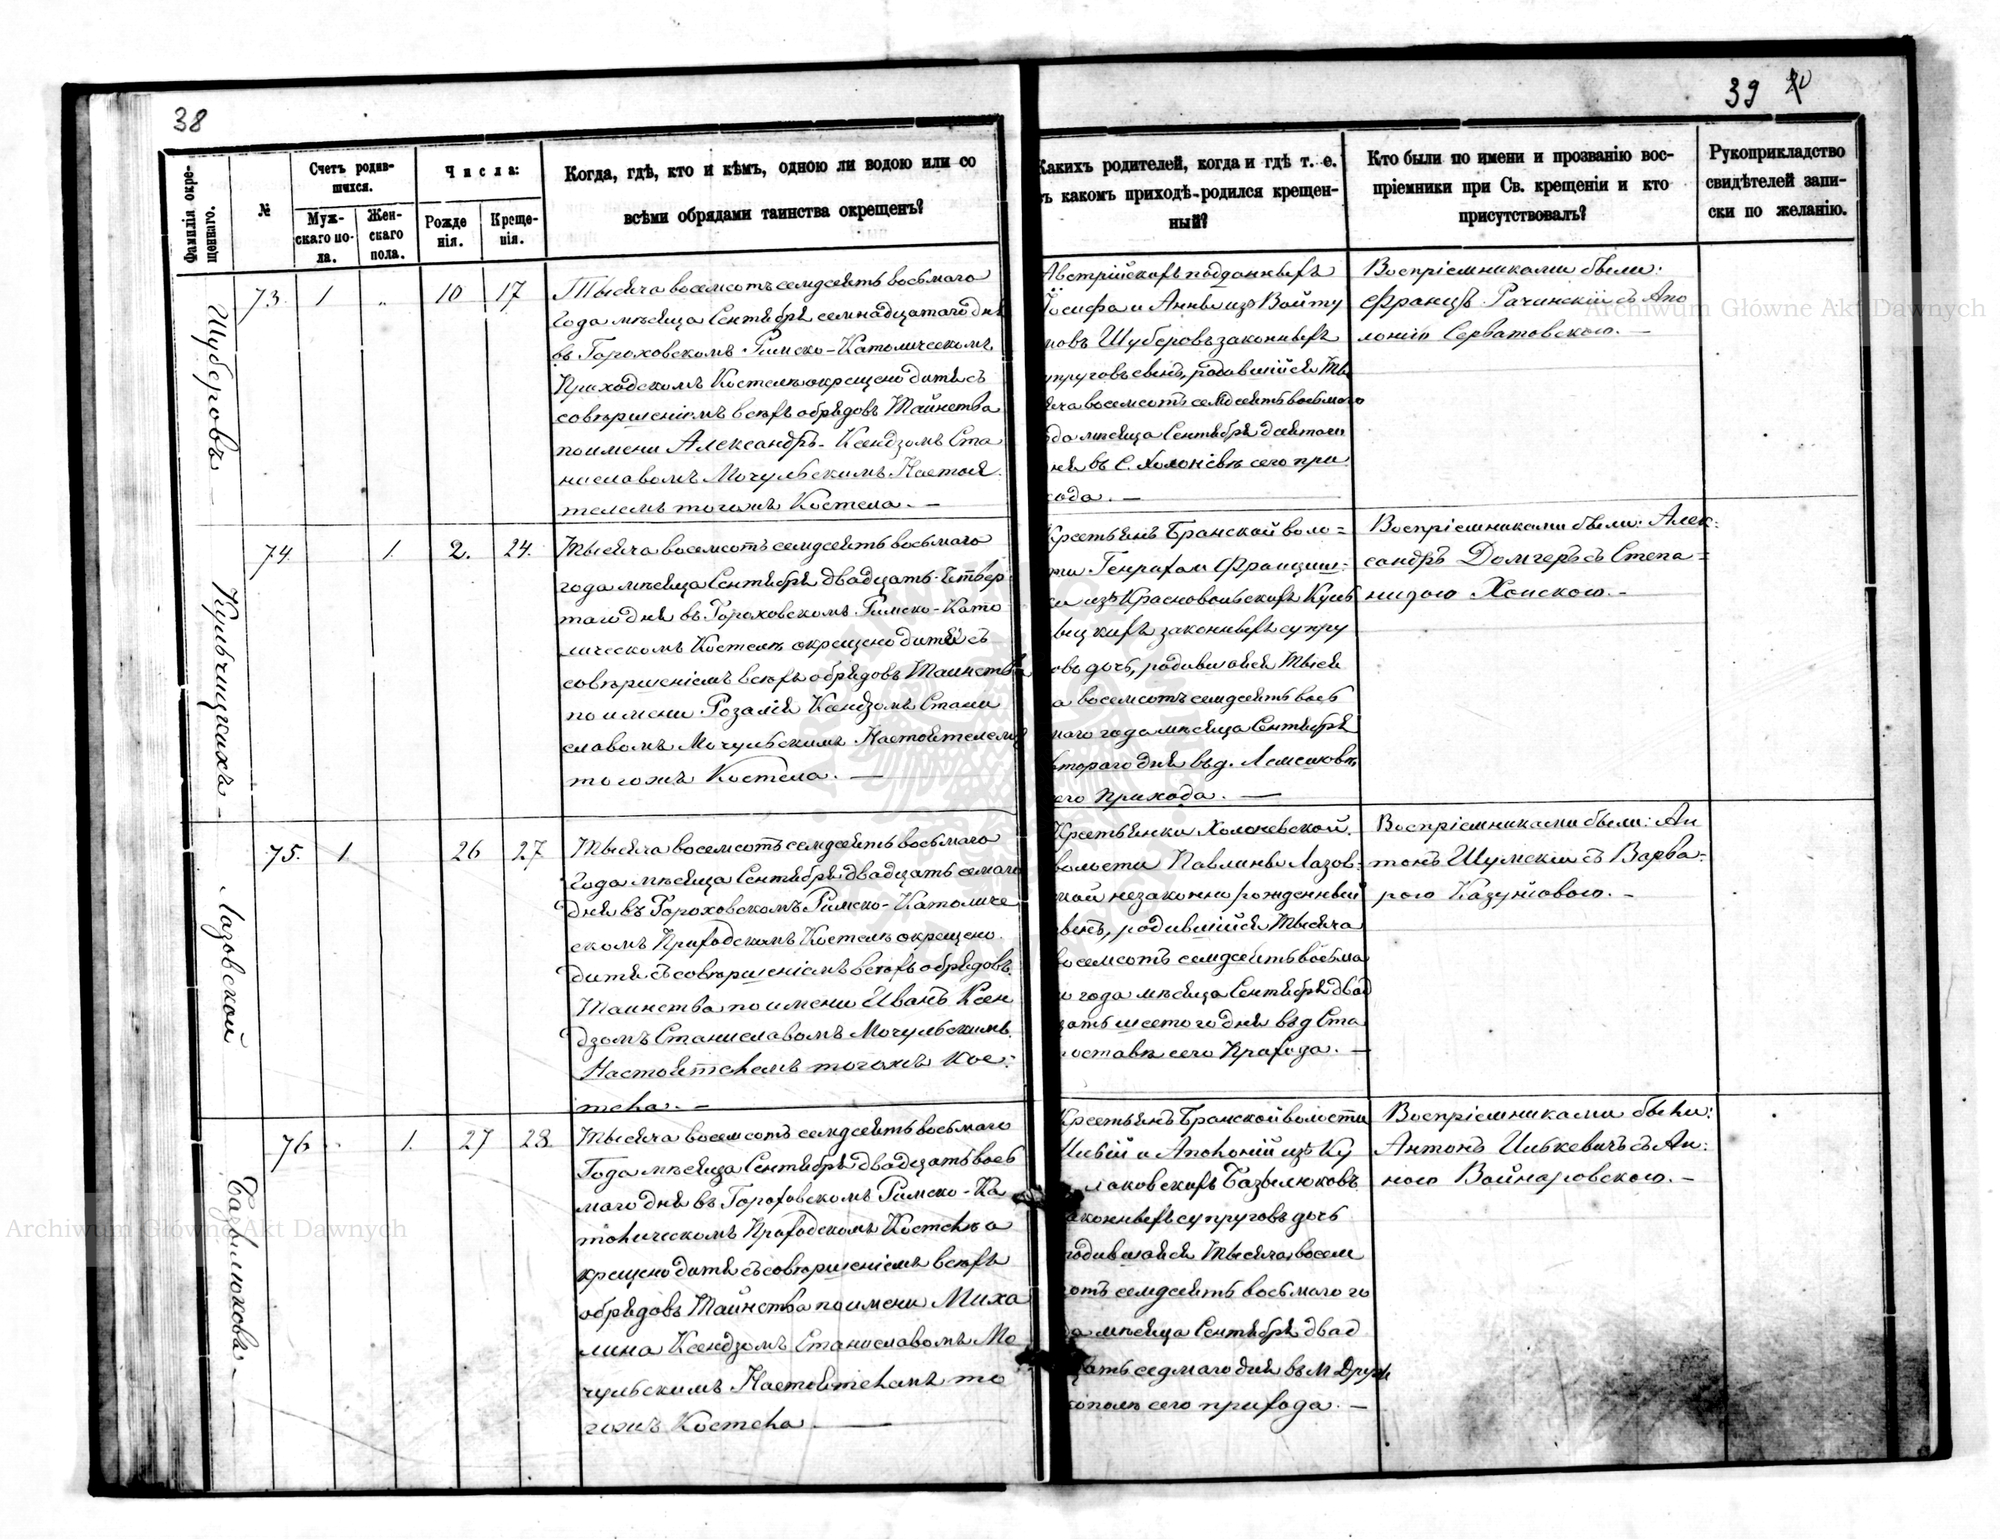 38
39
Фамилія окре-
щеннаго.
№
Счетъ родив-
шихся.
Муж-
скаго по-
ла.
Жен-
скаго
пола.
Числа:
Рожде
нія.
Креще-
нія.
Когда, гдѣ, кто и кѣмъ, одною ли водою или со
всѣми обрядами таинства окрещенъ?
Какихъ родителей, когда и гдѣ т. е.
въ какомъ приходѣ-родился крещен-
ный?
Кто были по имени и прозванію вос-
пріемники при Св. крещеніи и кто
присутствовалъ?
Рукоприкладство
свидѣтелей запи-
ски по желанію.
Шуберовъ
73. 1 " 10 17
Тысяча восемсотъ семдесятъ восьмаго
года мѣсяца Сентября семнадцатаго дня
въ Гороховскомъ Римско-Католическомъ
Приходскомъ Костелѣ окрещено дитя съ
совершеніемъ всѣхъ обрядовъ Таинства
по имени Александръ - Ксендзомъ Ста
ниславомъ Мочульскимъ Настоя
телемъ тогожъ Костела. —
Австрійскихъ подданныхъ
Іосифа и Анны изъ Войту
повъ Шуберовъ законныхъ
упруговъ сынъ, родившійся Ты
яча восемсотъ семдесятъ восьмаго
да мѣсяца Сентября десятаго
ня въ С. Холонѣвѣ сего при
хода. —
Воспріемниками были:
Францъ Рачинскій съ Апо
лоніею Серватовскою. —
Кульчицкихъ
74. 1. 2. 24.
Тысяча восемсотъ семдесятъ восьмаго
года мѣсяца Сентября двадцать четвер
таго дня въ Гороховскомъ Римско-Като
лическомъ Костелѣ окрещено дитя съ
совершеніемъ всѣхъ обрядовъ Таинства
по имени Розалія Ксендзомъ Стани
славомъ Мочульскимъ Настоятелемъ
тогожъ Костела. —
Крестьянъ Бранской воло=
сти Генриха и Францишъ:
ки изъ Красновольскихъ Куль
чицкихъ законныхъ супру
овъ дочь, родившаяся Тыся
а восемсотъ семдесятъ вось
маго года мѣсяца Сентября
втораго дня въ д. Лемешовкѣ
его Прихода. —
Воспріемниками были: Алек:
сандръ Домгеръ съ Степа=
нидою Хопскою. —
Лазовской
75. 1 26 27
Тысяча восемсотъ семдесятъ восьмаго
года мѣсяца Сентября двадцать семаго
дня въ Гороховскомъ Римско-Католиче
скомъ Приходскомъ Костелѣ окрещено
дитя съ совершеніемъ всѣхъ обрядовъ
Таинства по имени Иванъ Ксен
дзомъ Станиславомъ Мочульскимъ
Настоятелемъ тогожъ Кос:
тела. —
Крестьянки Холоневской
волости Павлины Лазов:
ской незаконно рожденный
сынъ, родившійся Тысяча
восемсотъ семдесятъ восьма
го года мѣсяца Сентября двад
цать шестого дня въ д Ста
роставѣ сего Прихода. —
Воспріемниками были: Ан
тонъ Шумскій съ Варва=
рою Казуніовою. —
Базылюковъ
76 1. 27 28
Тысяча восемсотъ семдесятъ восьмаго
Года мѣсяца Сентября двадцать вось
маго дня въ Гороховскомъ Римско-Ка
толическомъ Приходскомъ Костелѣ о
крещено дитя съ совершеніемъ всѣхъ
обрядовъ Таинства по имени Миха
лина Ксендзомъ Станиславомъ Мо
чульскимъ Настоятелемъ то
гожъ Костела. —
Крестьянъ Бранской волости
и Аполоніи изъ Ку
лаковскихъ Базылюковъ
законныхъ супруговъ дочь
родившаяся Тысяча восем
сотъ семдесятъ восьмаго го
да мѣсяца Сентября двад
цать седмаго дня въ М Друж
кополѣ сего прихода. —
Воспріемниками были:
Антонъ Илькевичъ съ Ан:
ною Войнаровскою. —
Archiwum Główne Akt Dawnych
Archiwum Główne Akt Dawnych